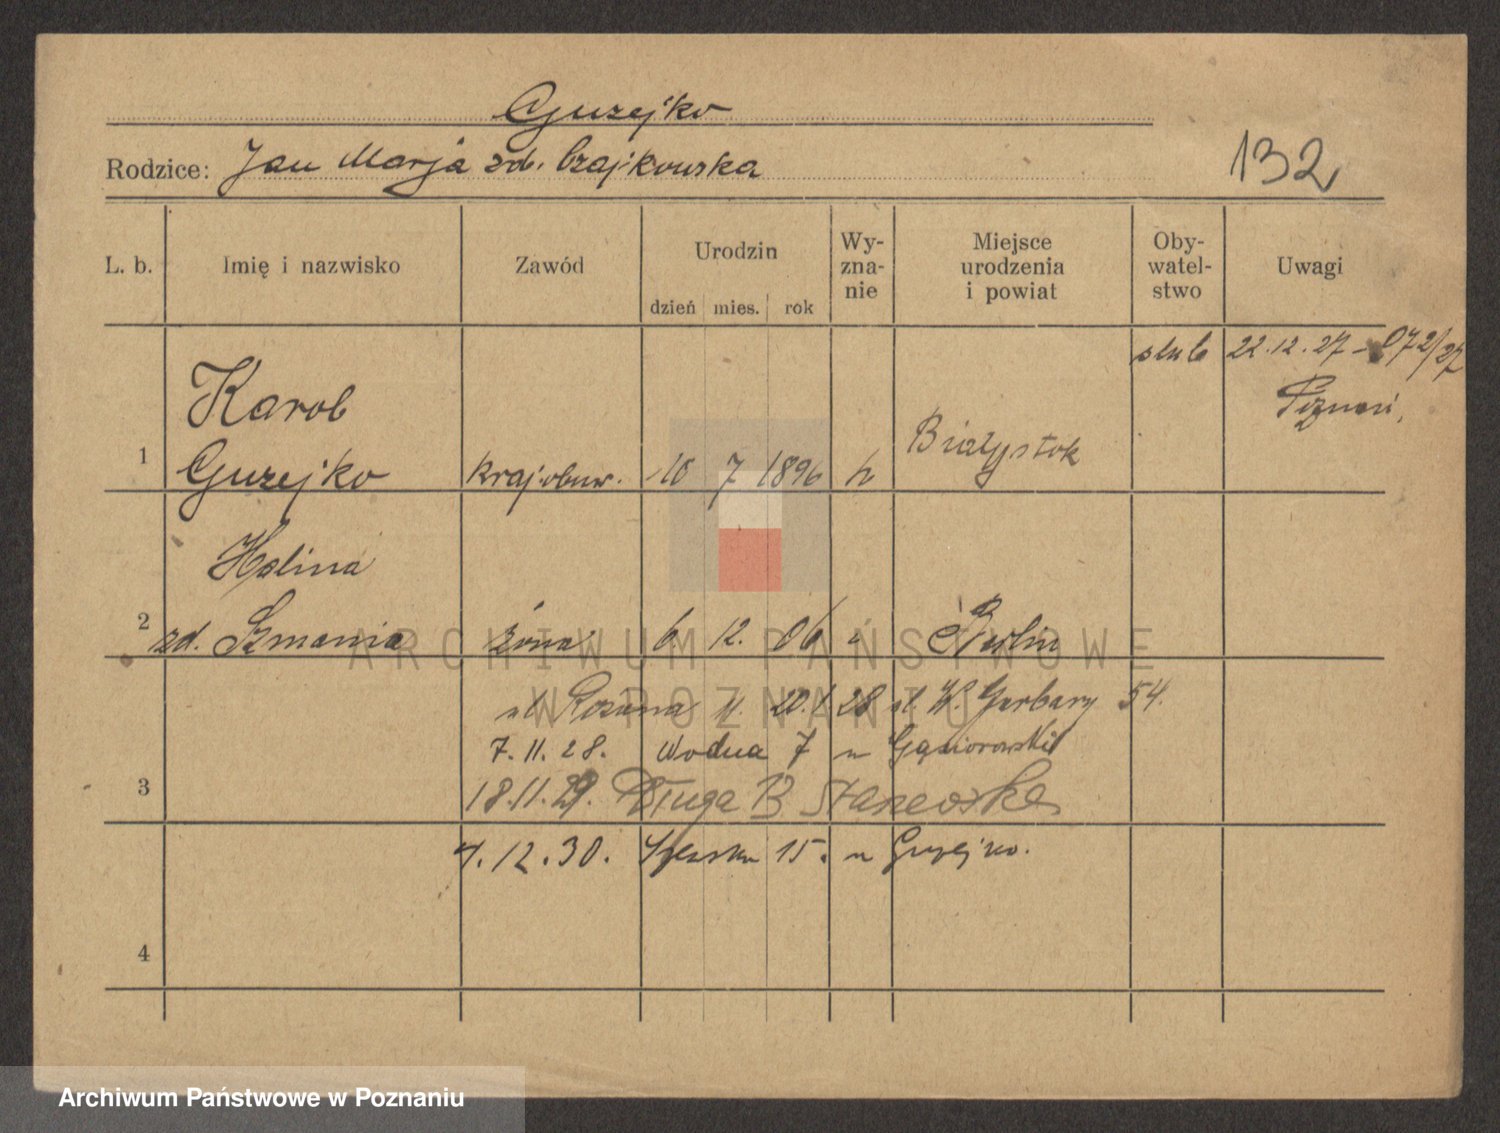 Guzejko
Rodzice: Jan Marja zd. Czajkowska
132
L. b. Imię i nazwisko Zawód Urodzin dzień mies. rok Wy-zna-nie Miejsce urodzenia i powiat Oby-watel-stwo Uwagi
ślub 22.12.27 - 72/27
Poznań,
Karol
1 Guzejko kraj. obuw. 10 7 1896 Białystok
Halina
2 zd. Szmania żona 6. 12. 06 Berlin
ul. Różana 11. 20.1.28 W. Garbary 54.
7.11.28. Wodna 7 u Gąsiorowski
3 18.11.29. Długa 13
12.30. 15. u Guzejko.
4
ARCHIWUM PAŃSTWOWE
W POZNANIU
Archiwum Państwowe w Poznaniu